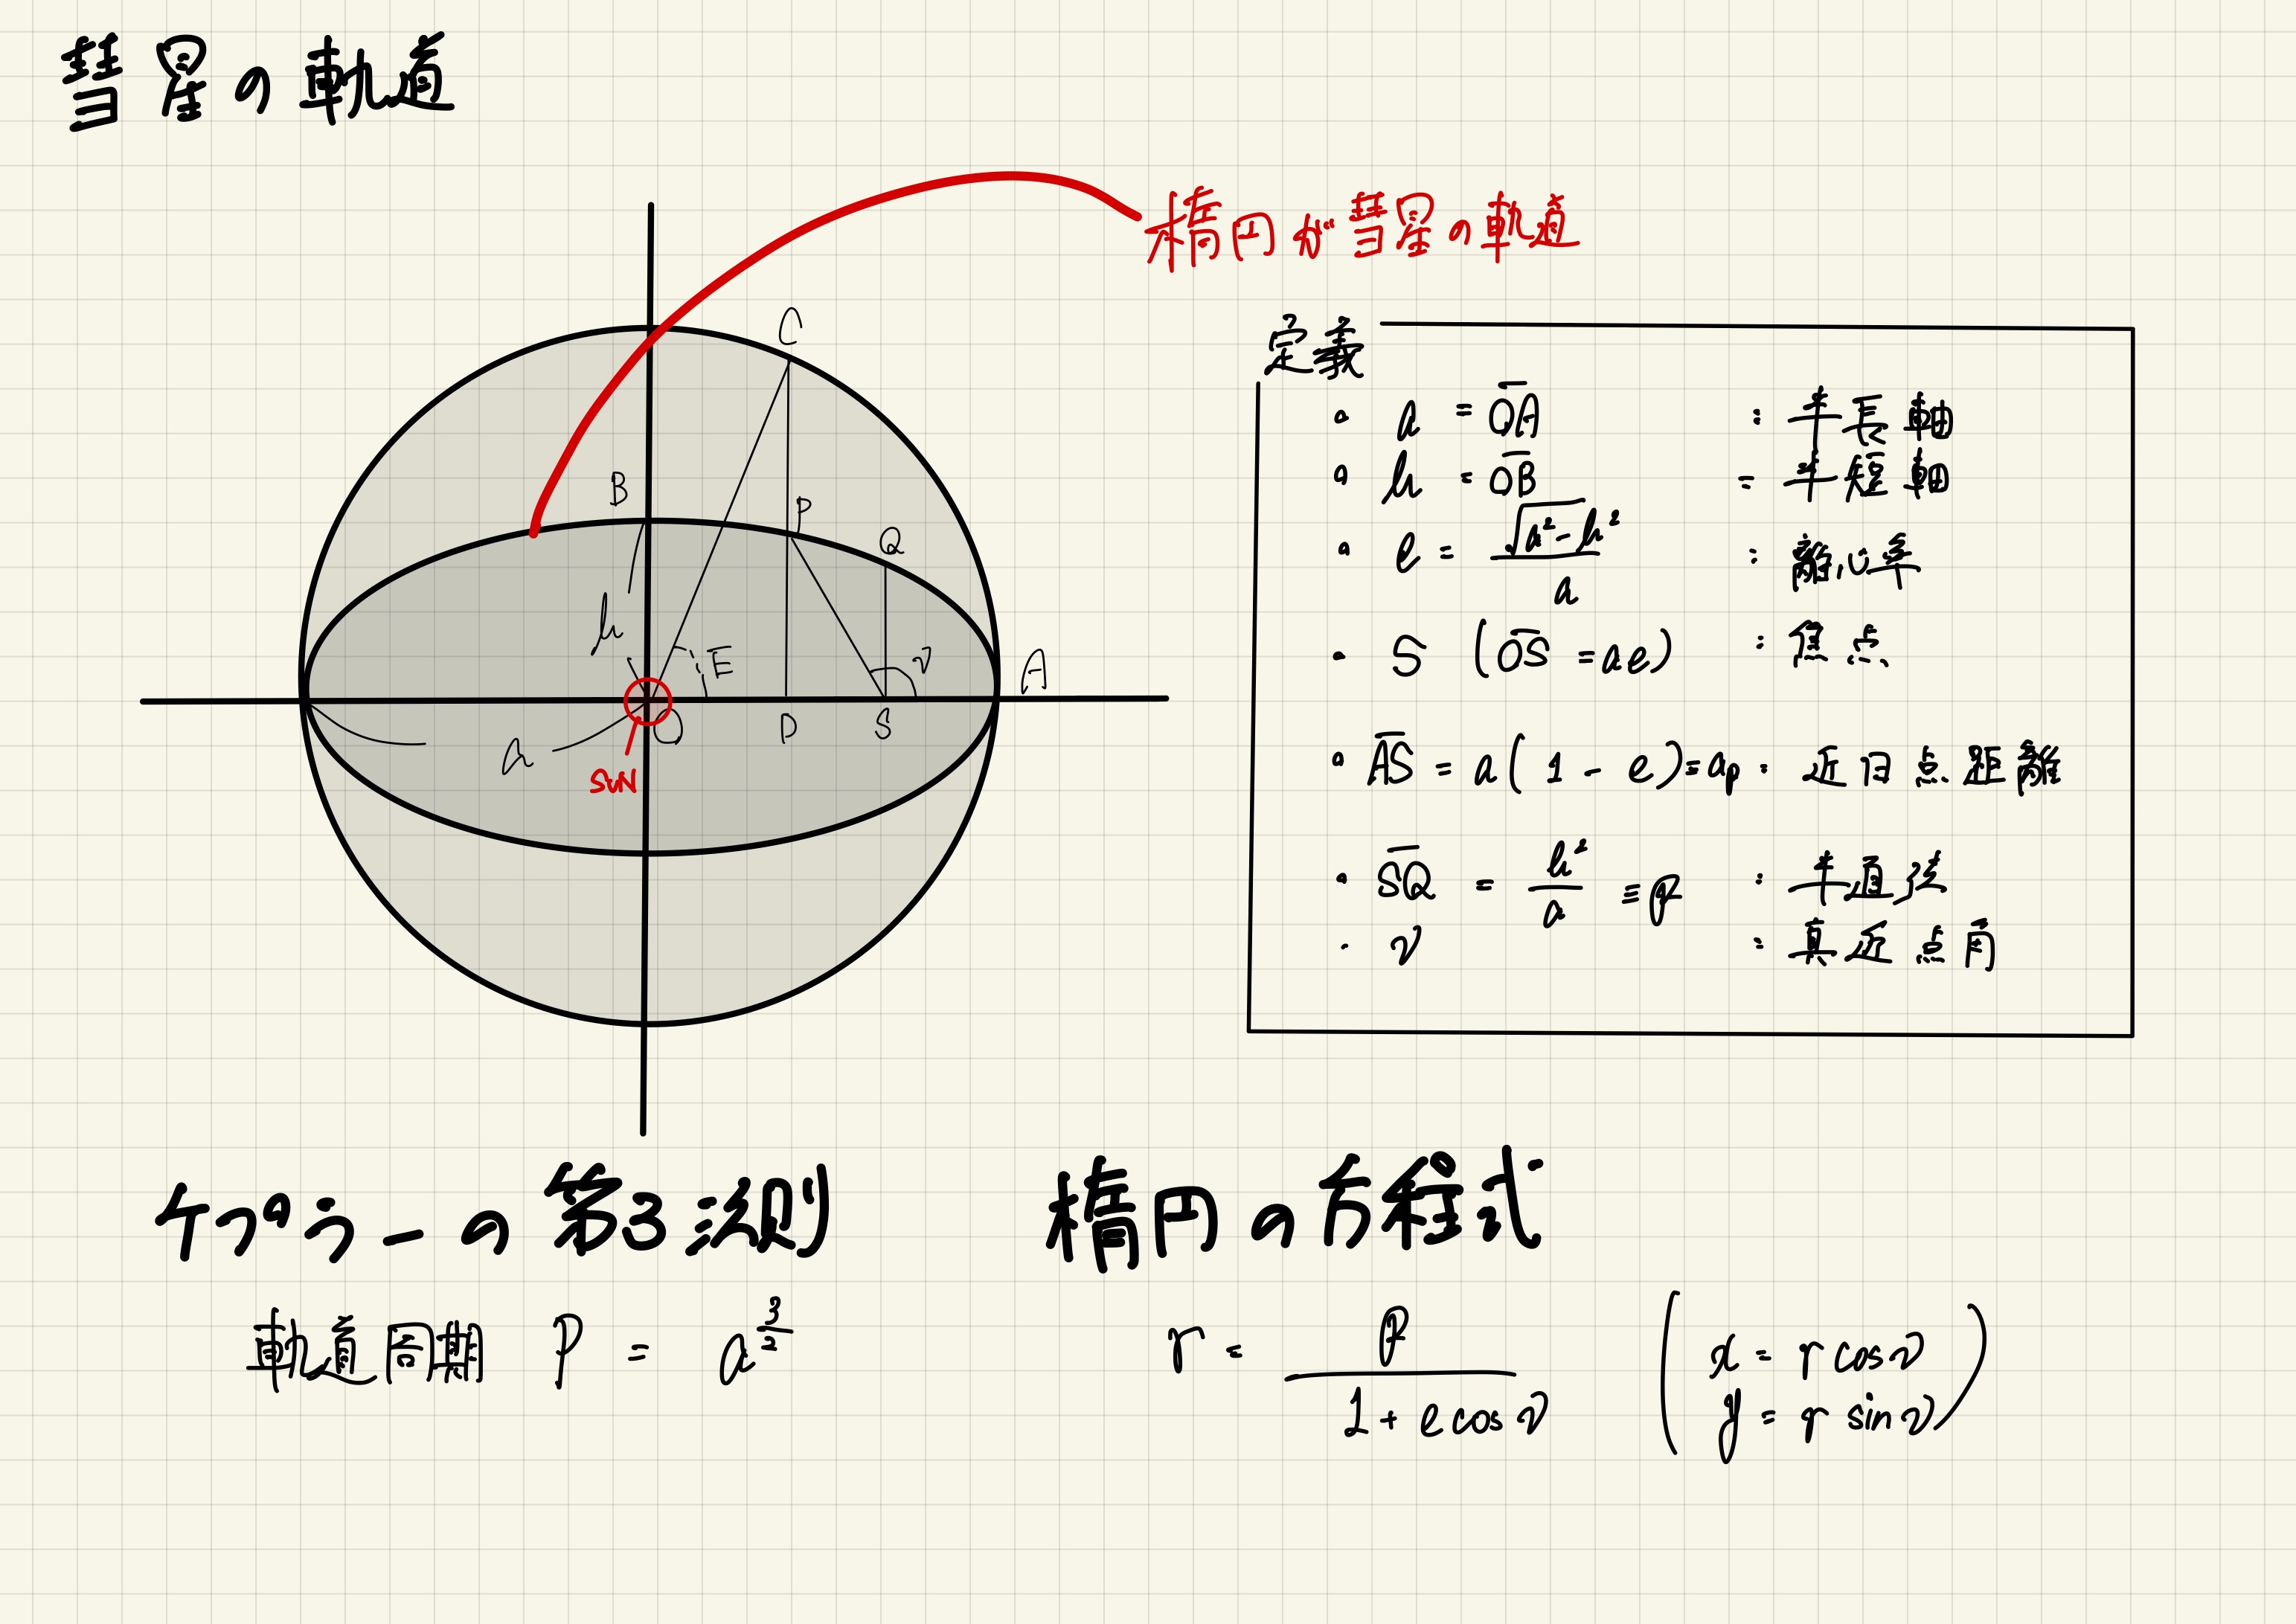 彗星の軌道
楕円が彗星の軌道
C
B
P
Q
b
E
ν
A
O
D
S
a
SUN
定義
・ a = O̅A̅ : 半長軸
・ b = O̅B̅ = 半短軸
・ e = √(a² - b²) / a : 離心率
・ S (O̅S̅ = ae) : 焦点
・ A̅S̅ = a(1 - e) = aₚ : 近日点距離
・ S̅Q̅ = b² / a ≡ p : 半直弦
・ ν : 真近点角
ケプラーの第3法則
軌道周期 P = a^(3/2)
楕円の方程式
r = p / (1 + e cos ν) (x = r cos ν
y = r sin ν)